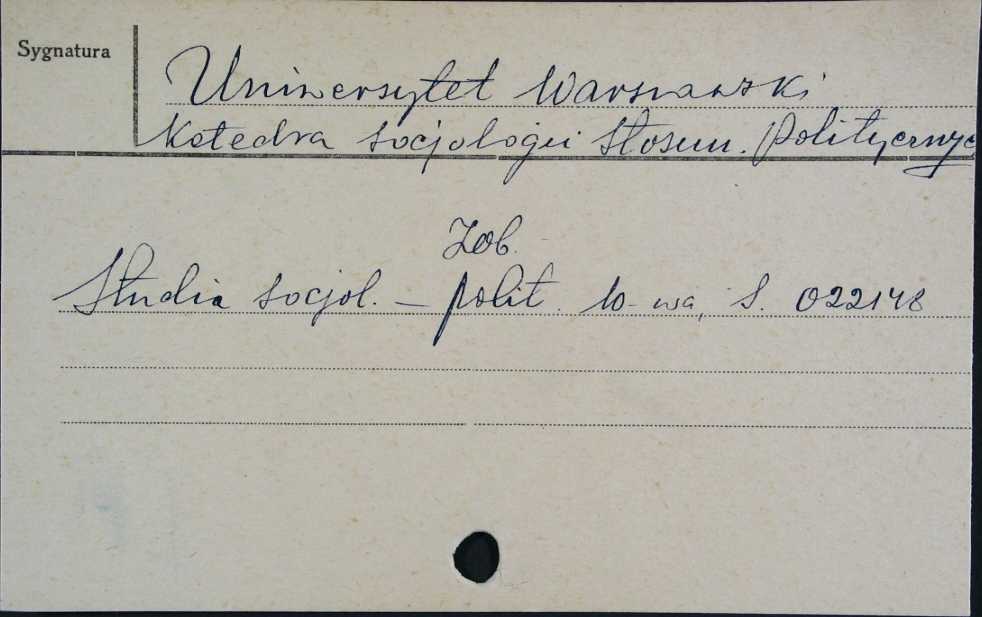 Sygnatura
Uniwersytet Warszawski
Katedra socjologii Stosun. Politycznyc
Zob.
Studia socjol. - polit. W-wa, S. 022148